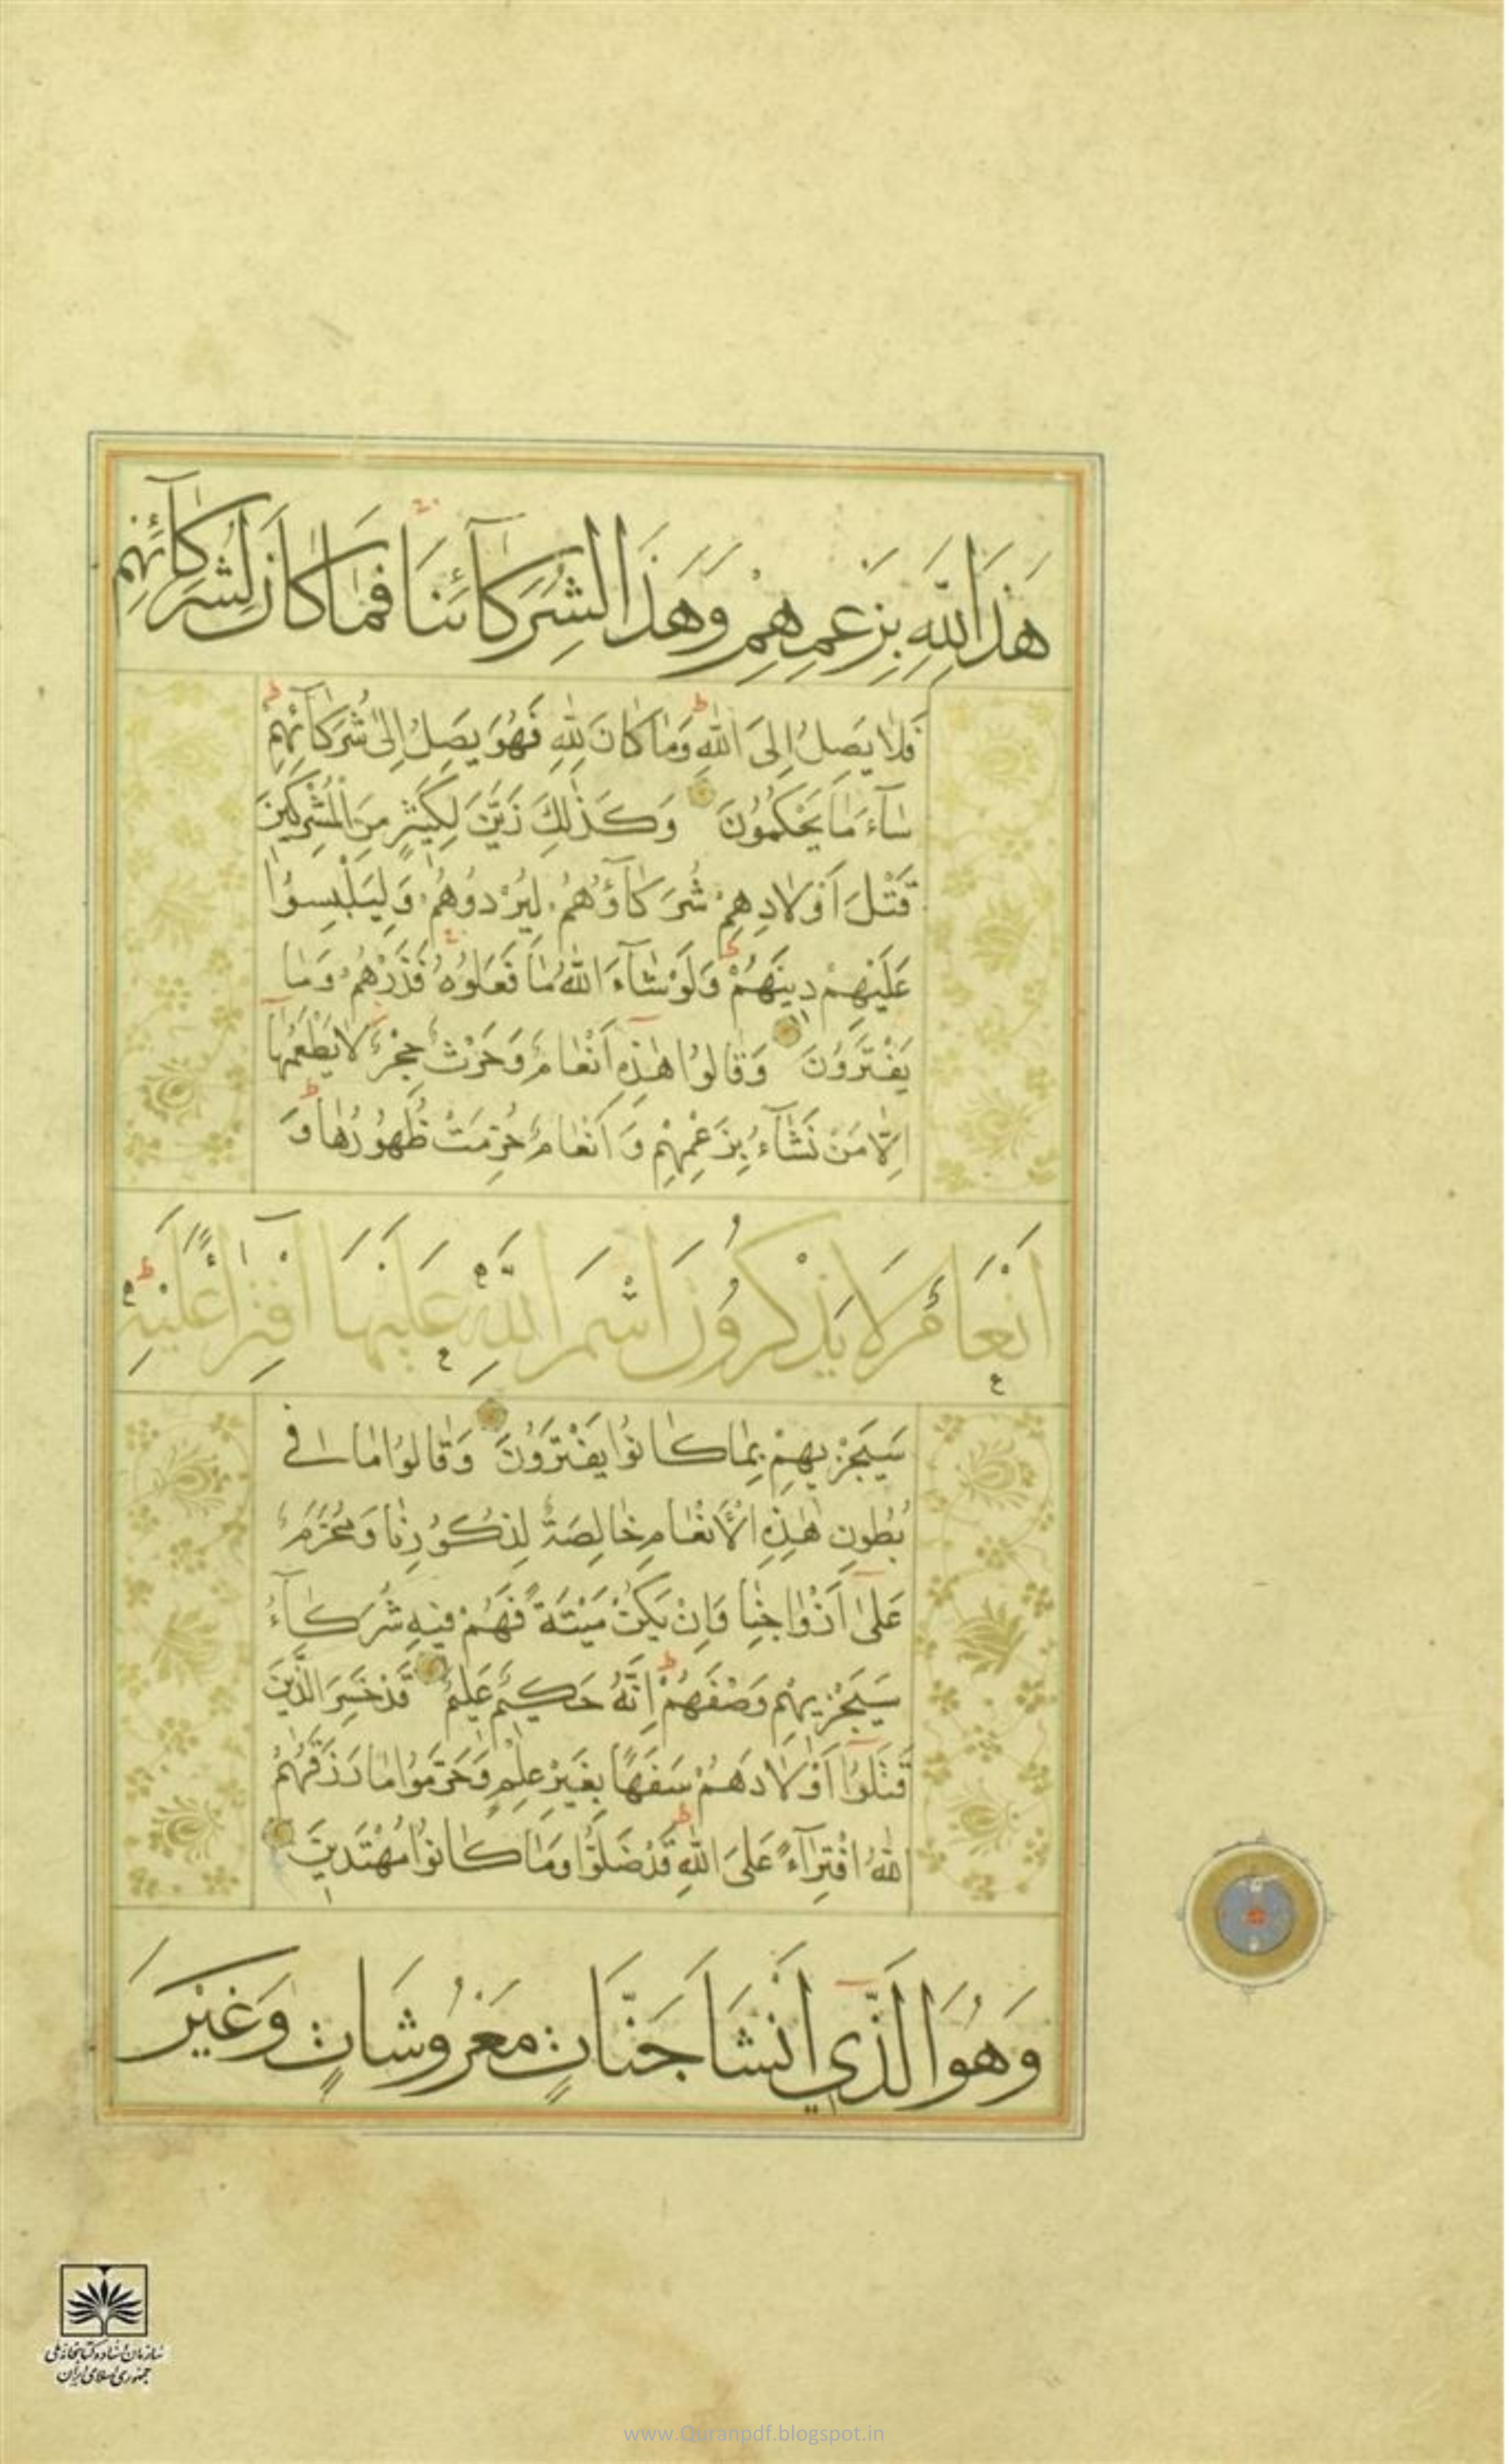 هَذَا لِلَّهِ بِزَعْمِهِمْ وَهَذَا لِشُرَكَآئِنَا فَمَا كَانَ لِشُرَكَآئِهِمْ
فَلَا يَصِلُ إِلَى اللَّهِ وَمَا كَانَ لِلَّهِ فَهُوَ يَصِلُ إِلَىٰ شُرَكَآئِهِمْ
سَآءَ مَا يَحْكُمُونَ وَكَذَٰلِكَ زَيَّنَ لِكَثِيرٍ مِنَ الْمُشْرِكِينَ
قَتْلَ أَوْلَادِهِمْ شُرَكَآؤُهُمْ لِيُرْدُوهُمْ وَلِيَلْبِسُوا
عَلَيْهِمْ دِينَهُمْ وَلَوْ شَآءَ اللَّهُ مَا فَعَلُوهُ فَذَرْهُمْ وَمَا
يَفْتَرُونَ وَقَالُوا هَٰذِهِ أَنْعَامٌ وَحَرْثٌ حِجْرٌ لَا يَطْعَمُهَا
إِلَّا مَنْ نَشَآءُ بِزَعْمِهِمْ وَأَنْعَامٌ حُرِّمَتْ ظُهُورُهَا وَ
أَنْعَامٌ لَا يَذْكُرُونَ اسْمَ اللَّهِ عَلَيْهَا افْتِرَآءً عَلَيْهِ
سَيَجْزِيهِمْ بِمَا كَانُوا يَفْتَرُونَ وَقَالُوا مَا فِي
بُطُونِ هَٰذِهِ الْأَنْعَامِ خَالِصَةٌ لِذُكُورِنَا وَمُحَرَّمٌ
عَلَىٰ أَزْوَاجِنَا وَإِنْ يَكُنْ مَيْتَةً فَهُمْ فِيهِ شُرَكَآءُ
سَيَجْزِيهِمْ وَصْفَهُمْ إِنَّهُ حَكِيمٌ عَلِيمٌ قَدْ خَسِرَ الَّذِينَ
قَتَلُوا أَوْلَادَهُمْ سَفَهًا بِغَيْرِ عِلْمٍ وَحَرَّمُوا مَا رَزَقَهُمُ
اللَّهُ افْتِرَآءً عَلَى اللَّهِ قَدْ ضَلُّوا وَمَا كَانُوا مُهْتَدِينَ
وَهُوَ الَّذِي أَنْشَأَ جَنَّاتٍ مَعْرُوشَاتٍ وَغَيْرَ
سازمان اسناد و کتابخانه ملی
جمهوری اسلامی ایران
www.Quranpdf.blogspot.in